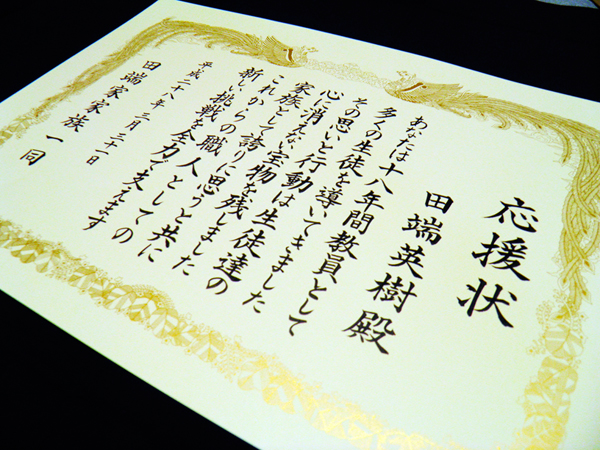 応援状
田端英樹殿
あなたは十八年間教員として
多くの生徒を導いてきました
その思いと行動は生徒達の
心に消えない宝物を残しました
家族として誇りに思うと共に
これからの職人としての
新しい挑戦を全力で支えます
平成二八年三月三十一日
田端家家族一同